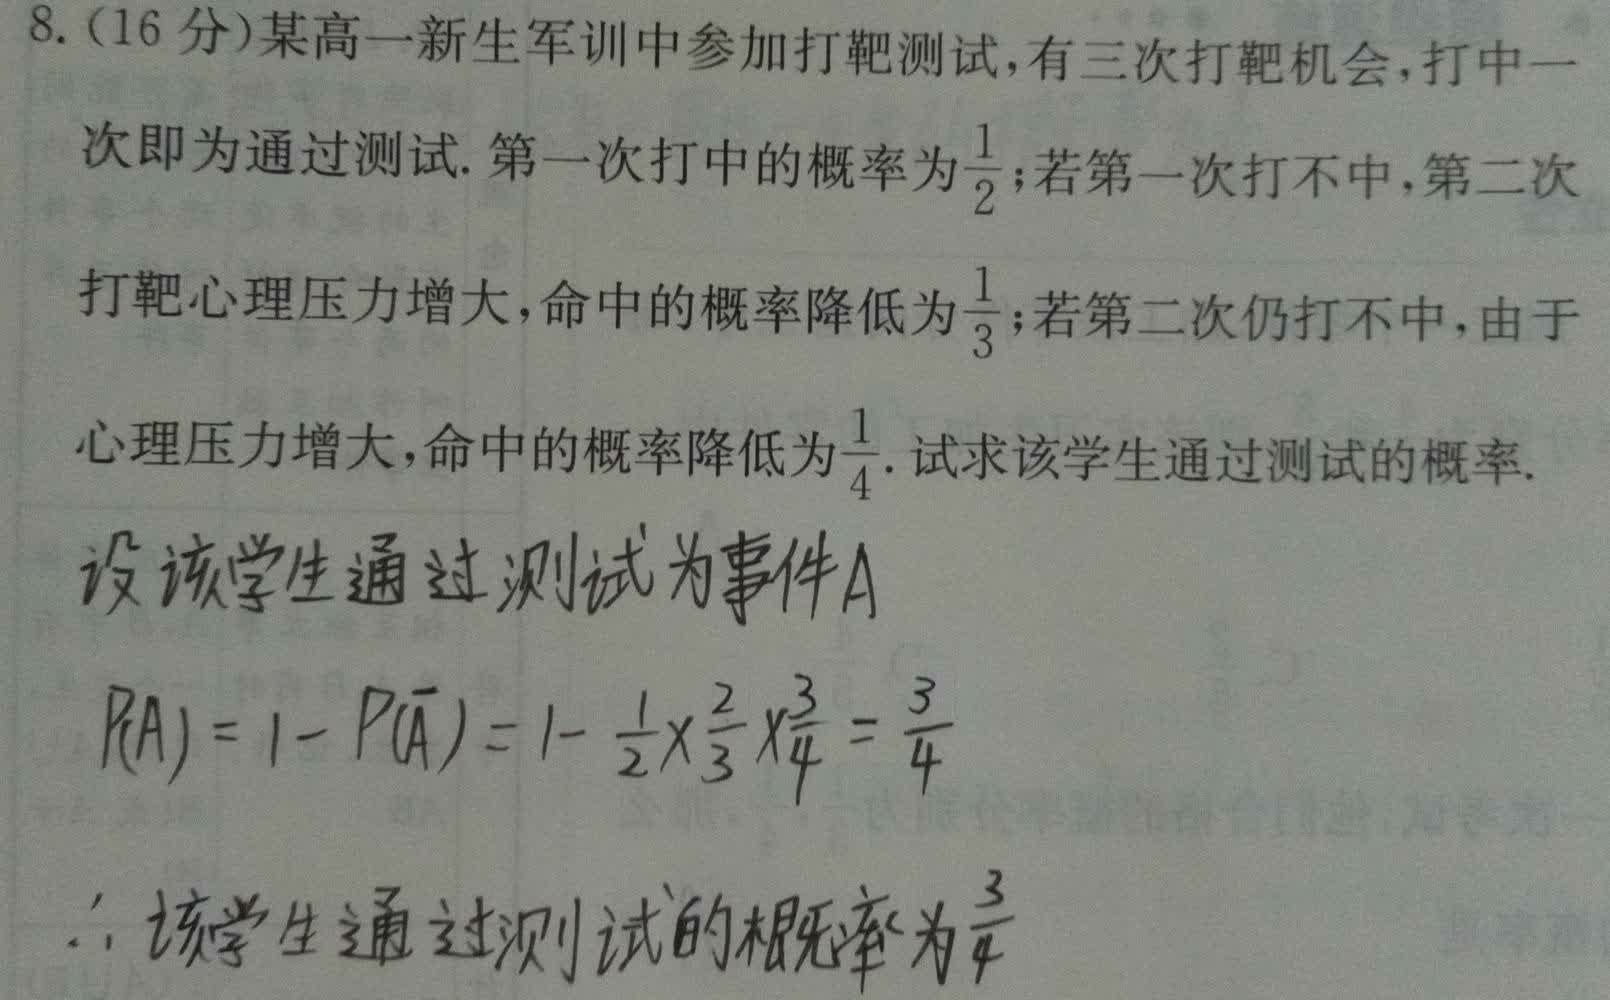 8.(16 分)某高一新生军训中参加打靶测试,有三次打靶机会,打中一
次即为通过测试.第一次打中的概率为1/2;若第一次打不中,第二次
打靶心理压力增大,命中的概率降低为1/3;若第二次仍打不中,由于
心理压力增大,命中的概率降低为1/4.试求该学生通过测试的概率.
设该学生通过测试为事件A
P(A) = 1 - P(Ā) = 1 - 1/2 × 2/3 × 3/4 = 3/4
∴ 该学生通过测试的概率为3/4